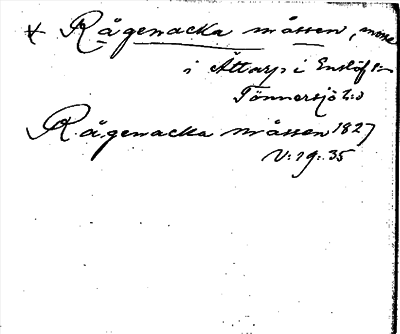 + Rågenacka måssen, mosse
i Ättarp i Enslöf s:n
Tönnersjö h:d
Rågenacka måssen 1827
V: 19: 35